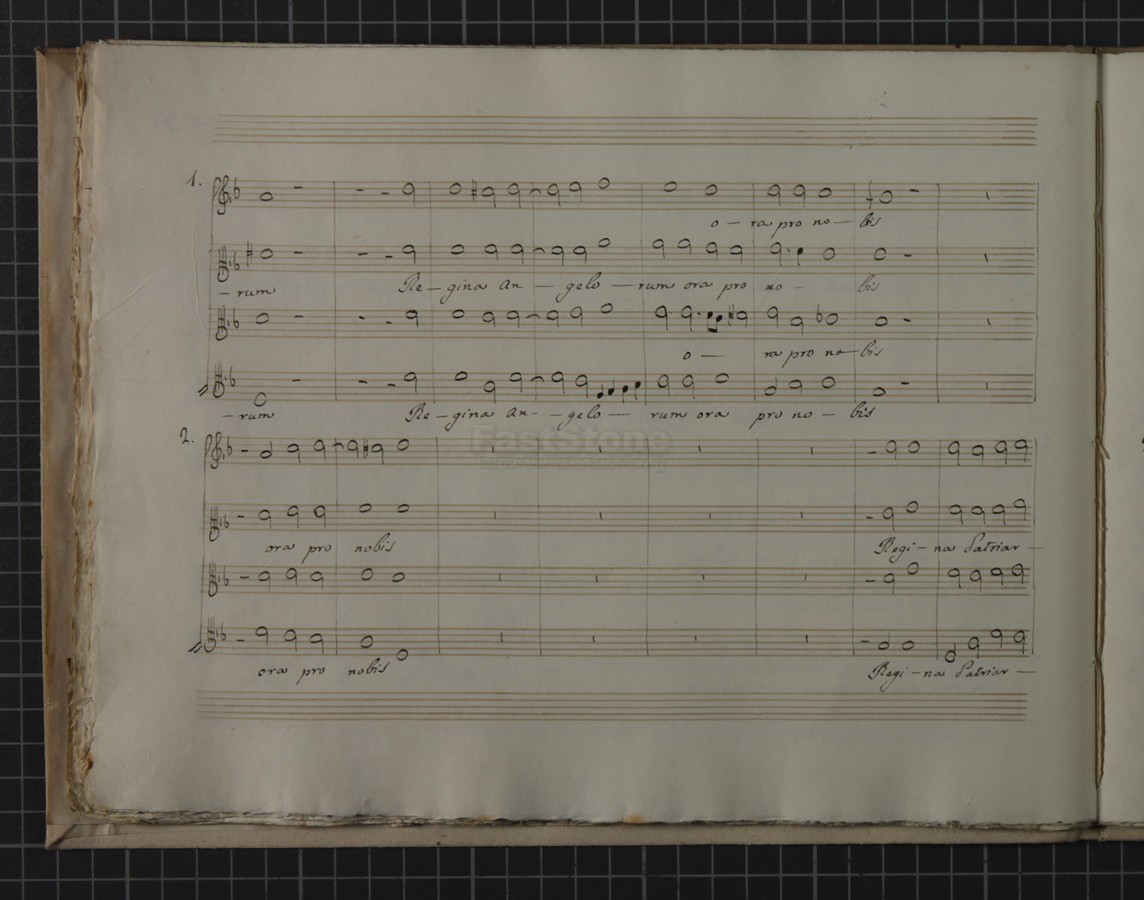 1.
o – ra pro no – bis
– rum Re – gina An – gelo – rum ora pro no – bis
o – ra pro no – bis
– rum Re – gina An – gelo – rum ora pro no – bis
2.
FastStone
ora pro nobis Regi – na Patriar –
ora pro nobis Regi – na Patriar –